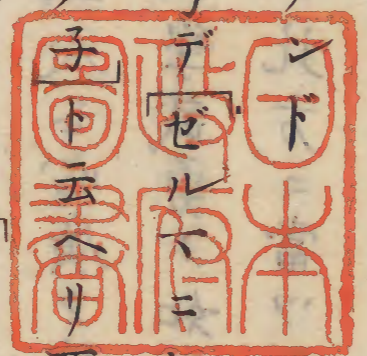 ンド
デゼルマニ
子ト云ヘリ
日本
政府
圖書